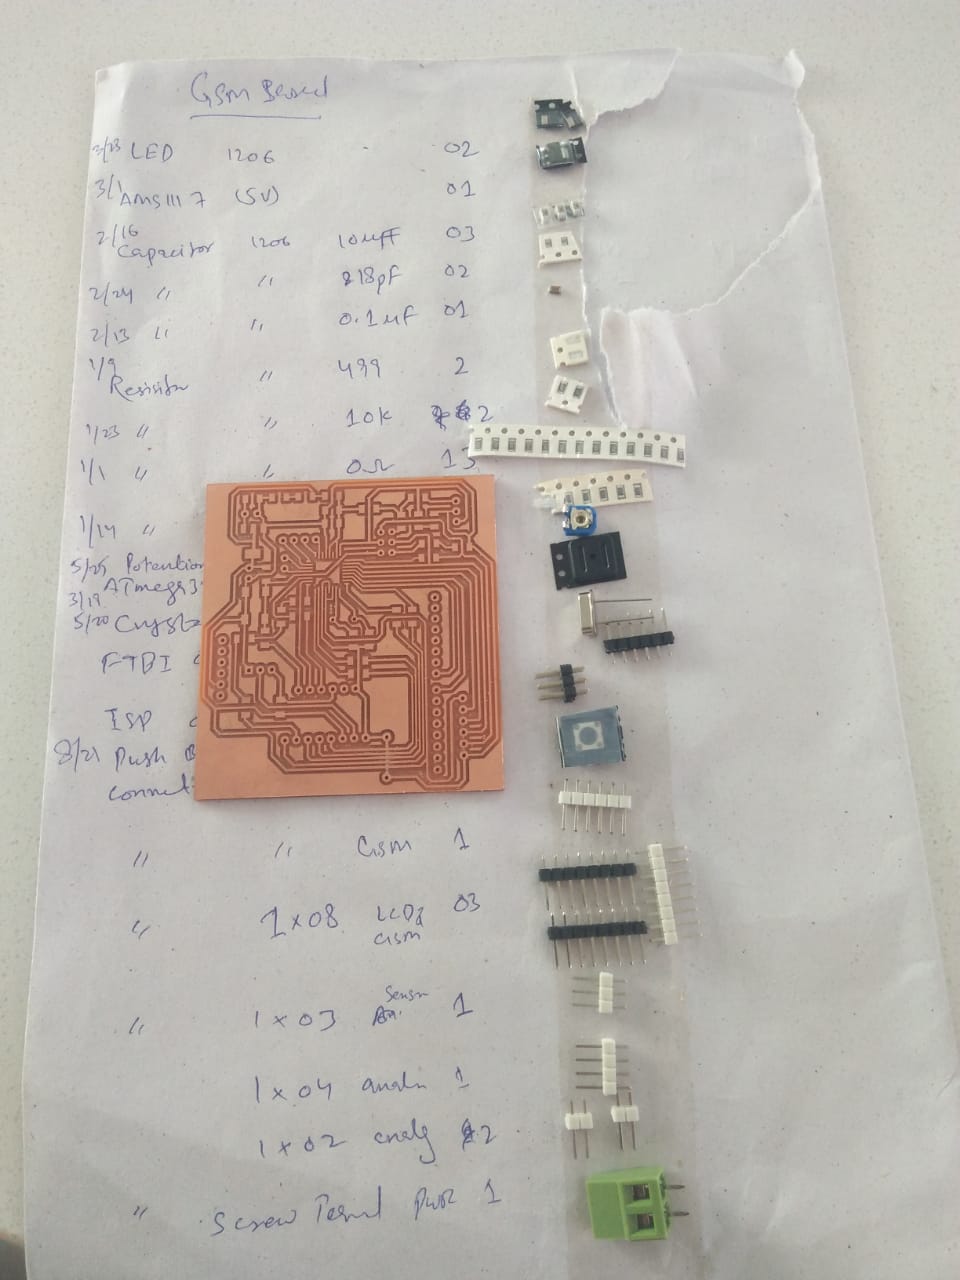 GSM Board
2/23 LED 1206 02
3/1 AMS1117 (5V) 01
2/16 Capacitor 1206 10uF 03
2/24 " " 18pF 02
2/13 " " 0.1uF 01
1/9 Resistor " 499 2
1/23 " " 10K 2
1/1 " " 0Ω 13
1/14 "
5/25 Potention
3/19 ATmega3
5/20 Crysta
FTDI
ISP
8/21 Push B
Connect
" " GSM 1
" 1x08 LCD& GSM 03
" 1x03 Sensor 1
1x04 1
1x02 analg 2
" Screw Terml pwr 1